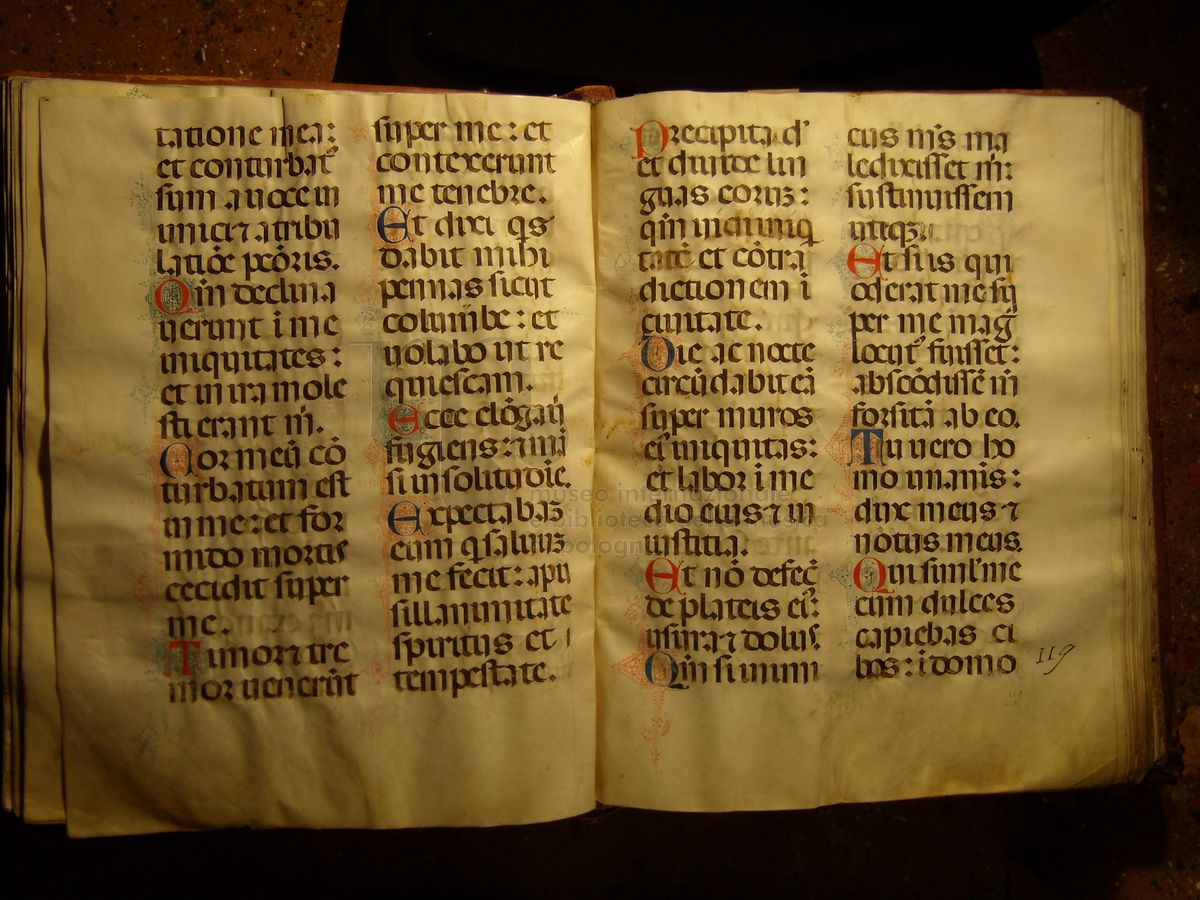 tatione mea:
et conturbat᷑
sum a uoce in
imici ⁊ a tribu
latiõe pctõris.
Qm̃ declina
uerunt i me
iniquitates:
et in ira mole
sti erant m̃.
Cor meũ cõ
turbatum est
in me: et for
mido mortis
cecidit super
me.
Timor ⁊ tre
mor uenerũt
super me: et
contexerunt
me tenebre.
Et dixi qs
dabit mihi
pennas sicut
columbe: et
uolabo ut re
quiescam.
Ecce elõgaui
fugiens: ⁊ mãsi
i solitudĩe.
Expectabaꝫ
eum q saluuꝫ
me fecit: a pu
sillanimitate
spiritus et
tempestate.
Precipita d'
et diuide lin
guas eoruꝫ:
qm̃ uidi iniq
tatẽ et cõtra
dictionem i
ciuitate.
Die ac nocte
circũdabit eã
super muros
ei' iniquitas:
et labor i me
dio eius ⁊ in
iustitia.
Et nõ defec̃
de plateis ei':
usura ⁊ dolus.
Qm̃ si inimi
cus m̃s ma
ledixisset m̃:
sustinuissem
utiqꝫ
Et si is qui
oderat me su
per me mag
locut' fuisset:
abscõdissẽ m̃
forsitã ab eo.
Tu uero ho
mo unanis:
dux meus ⁊
notus meus.
Qui siml' me
cum dulces
capiebas ci
bos: i domo
119
museo internazionale
e biblioteca della musica
bologna